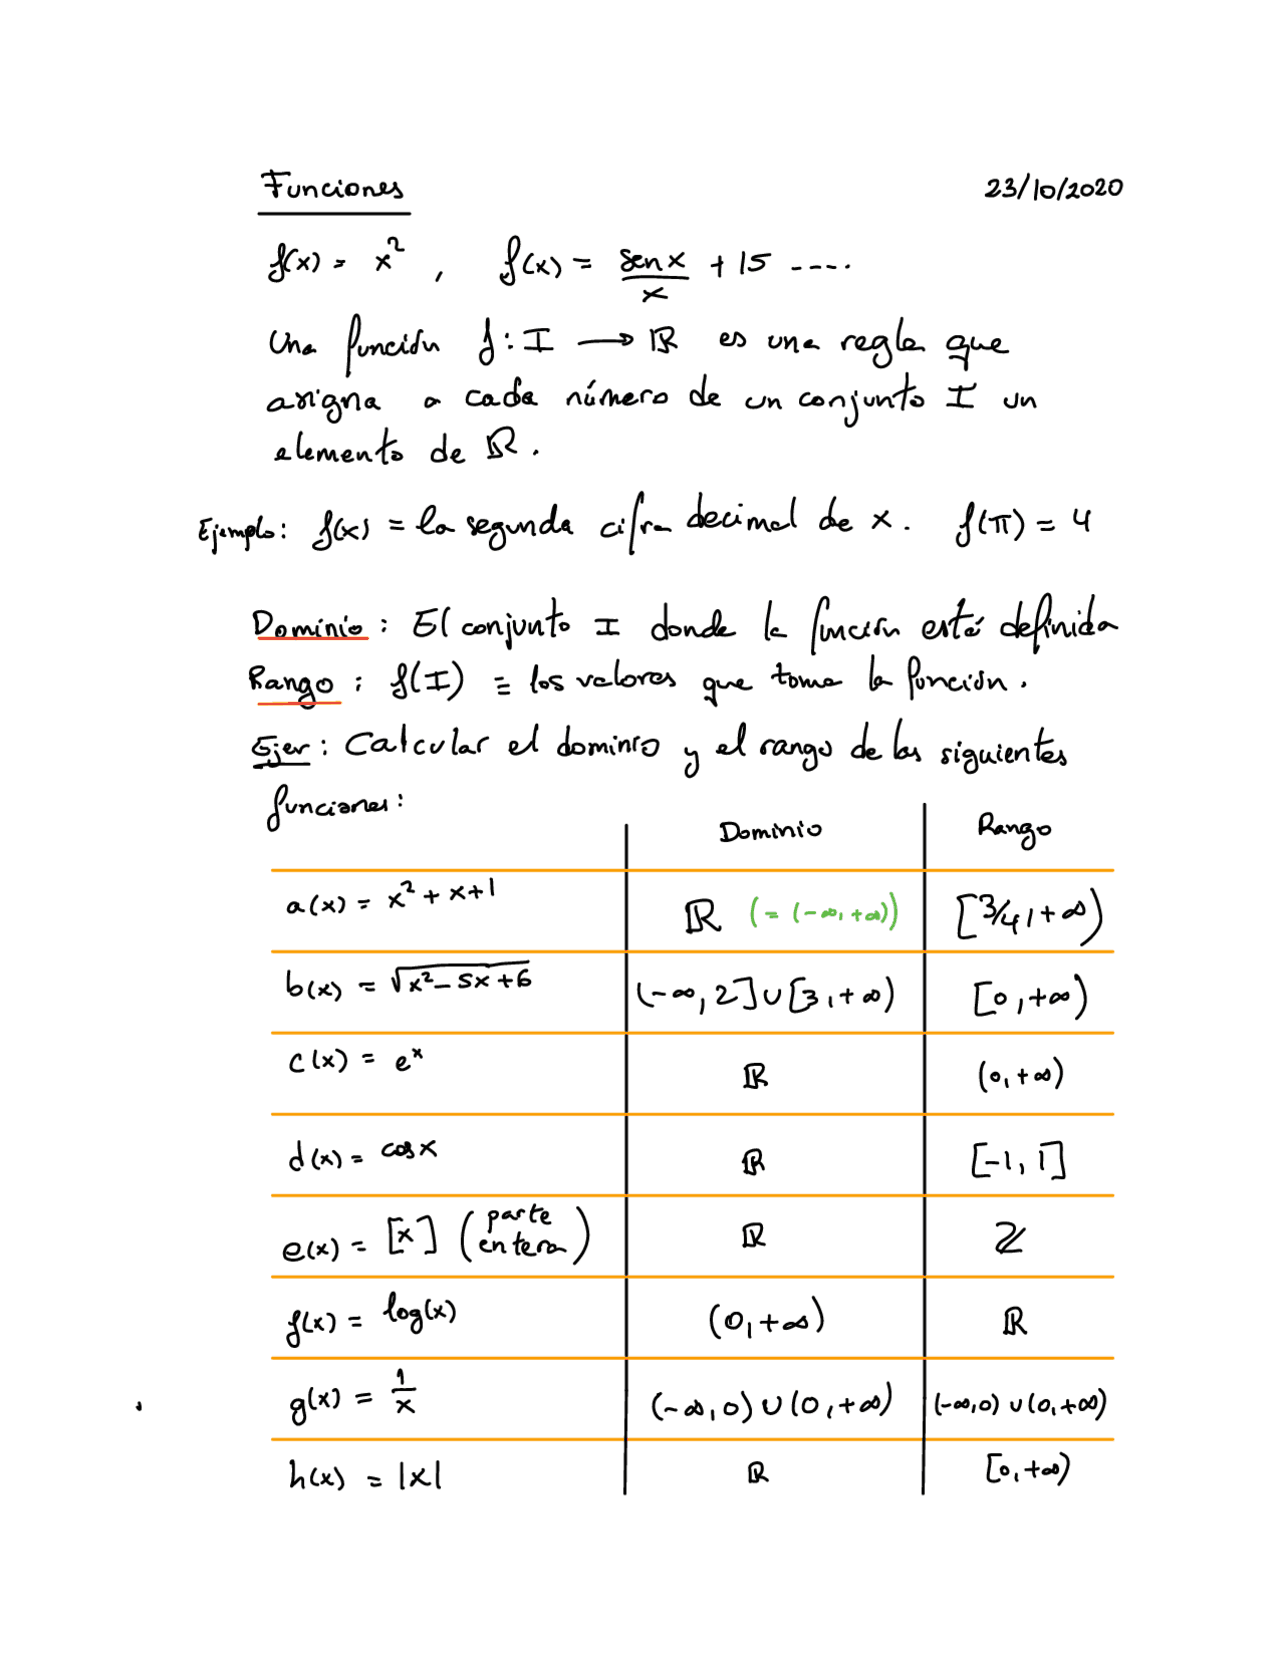 Funciones 23/10/2020
f(x) = x², f(x) = sen x / x + 15 ----.
Una función f: I → ℝ es una regla que
asigna a cada número de un conjunto I un
elemento de ℝ.
Ejemplo: f(x) = la segunda cifra decimal de x. f(π) = 4
Dominio: El conjunto I donde la función está definida
Rango: f(I) ≡ los valores que toma la función.
Ejer: Calcular el dominio y el rango de las siguientes
funciones:
Dominio Rango
a(x) = x² + x + 1 ℝ (= (-∞, +∞)) [3/4, +∞)
b(x) = √(x² - 5x + 6) (-∞, 2] ∪ [3, +∞) [0, +∞)
c(x) = eˣ ℝ (0, +∞)
d(x) = cos x ℝ [-1, 1]
e(x) = [x] (parte entera) ℝ ℤ
f(x) = log(x) (0, +∞) ℝ
g(x) = 1/x (-∞, 0) ∪ (0, +∞) (-∞, 0) ∪ (0, +∞)
h(x) = |x| ℝ [0, +∞)